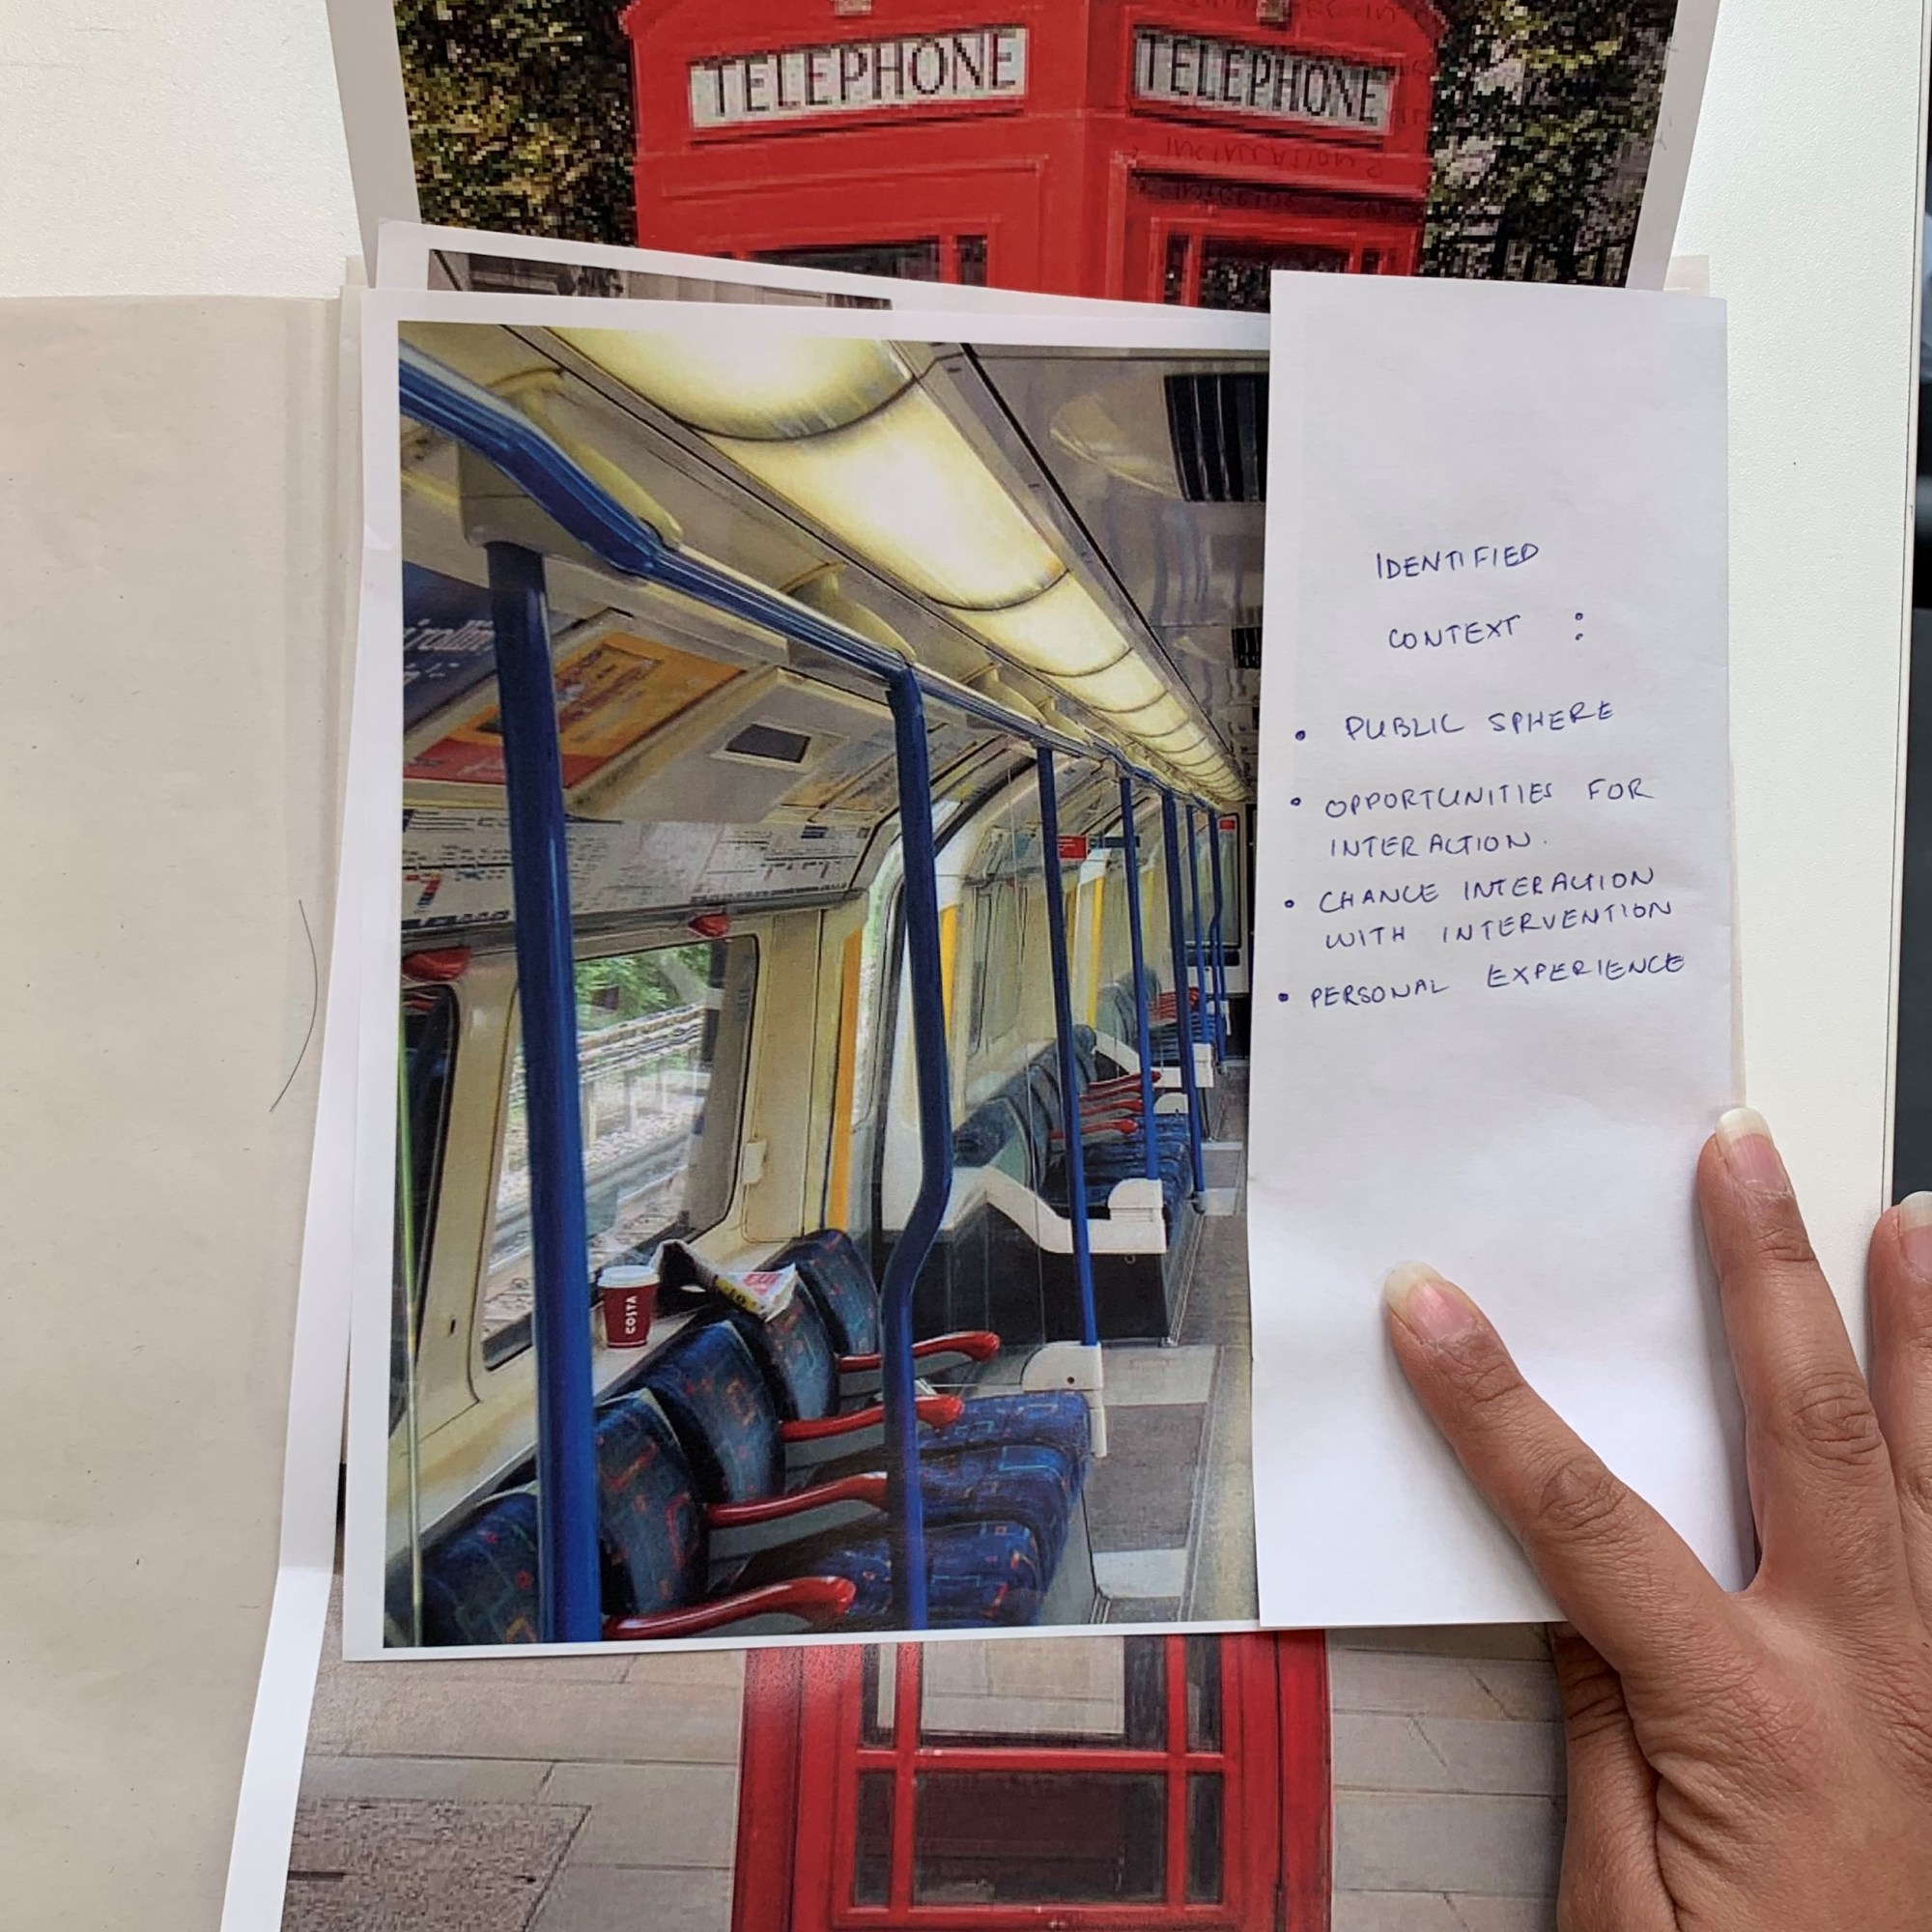 TELEPHONE TELEPHONE
IDENTIFIED
CONTEXT :
• PUBLIC SPHERE
• OPPORTUNITIES FOR
INTERACTION.
• CHANCE INTERACTION
WITH INTERVENTION
• PERSONAL EXPERIENCE
COSTA